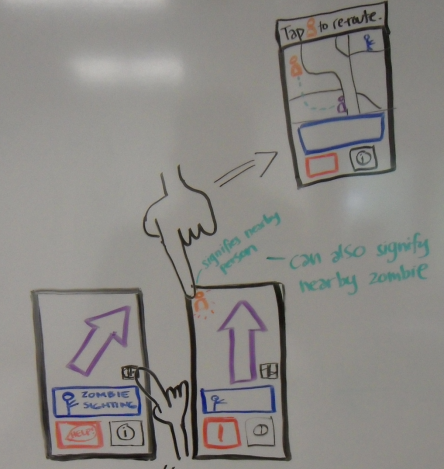 Tap to re-route.
signifies nearby
person
— can also signify
nearby zombie
ZOMBIE
SIGHTING
HELP
i
!
i
i